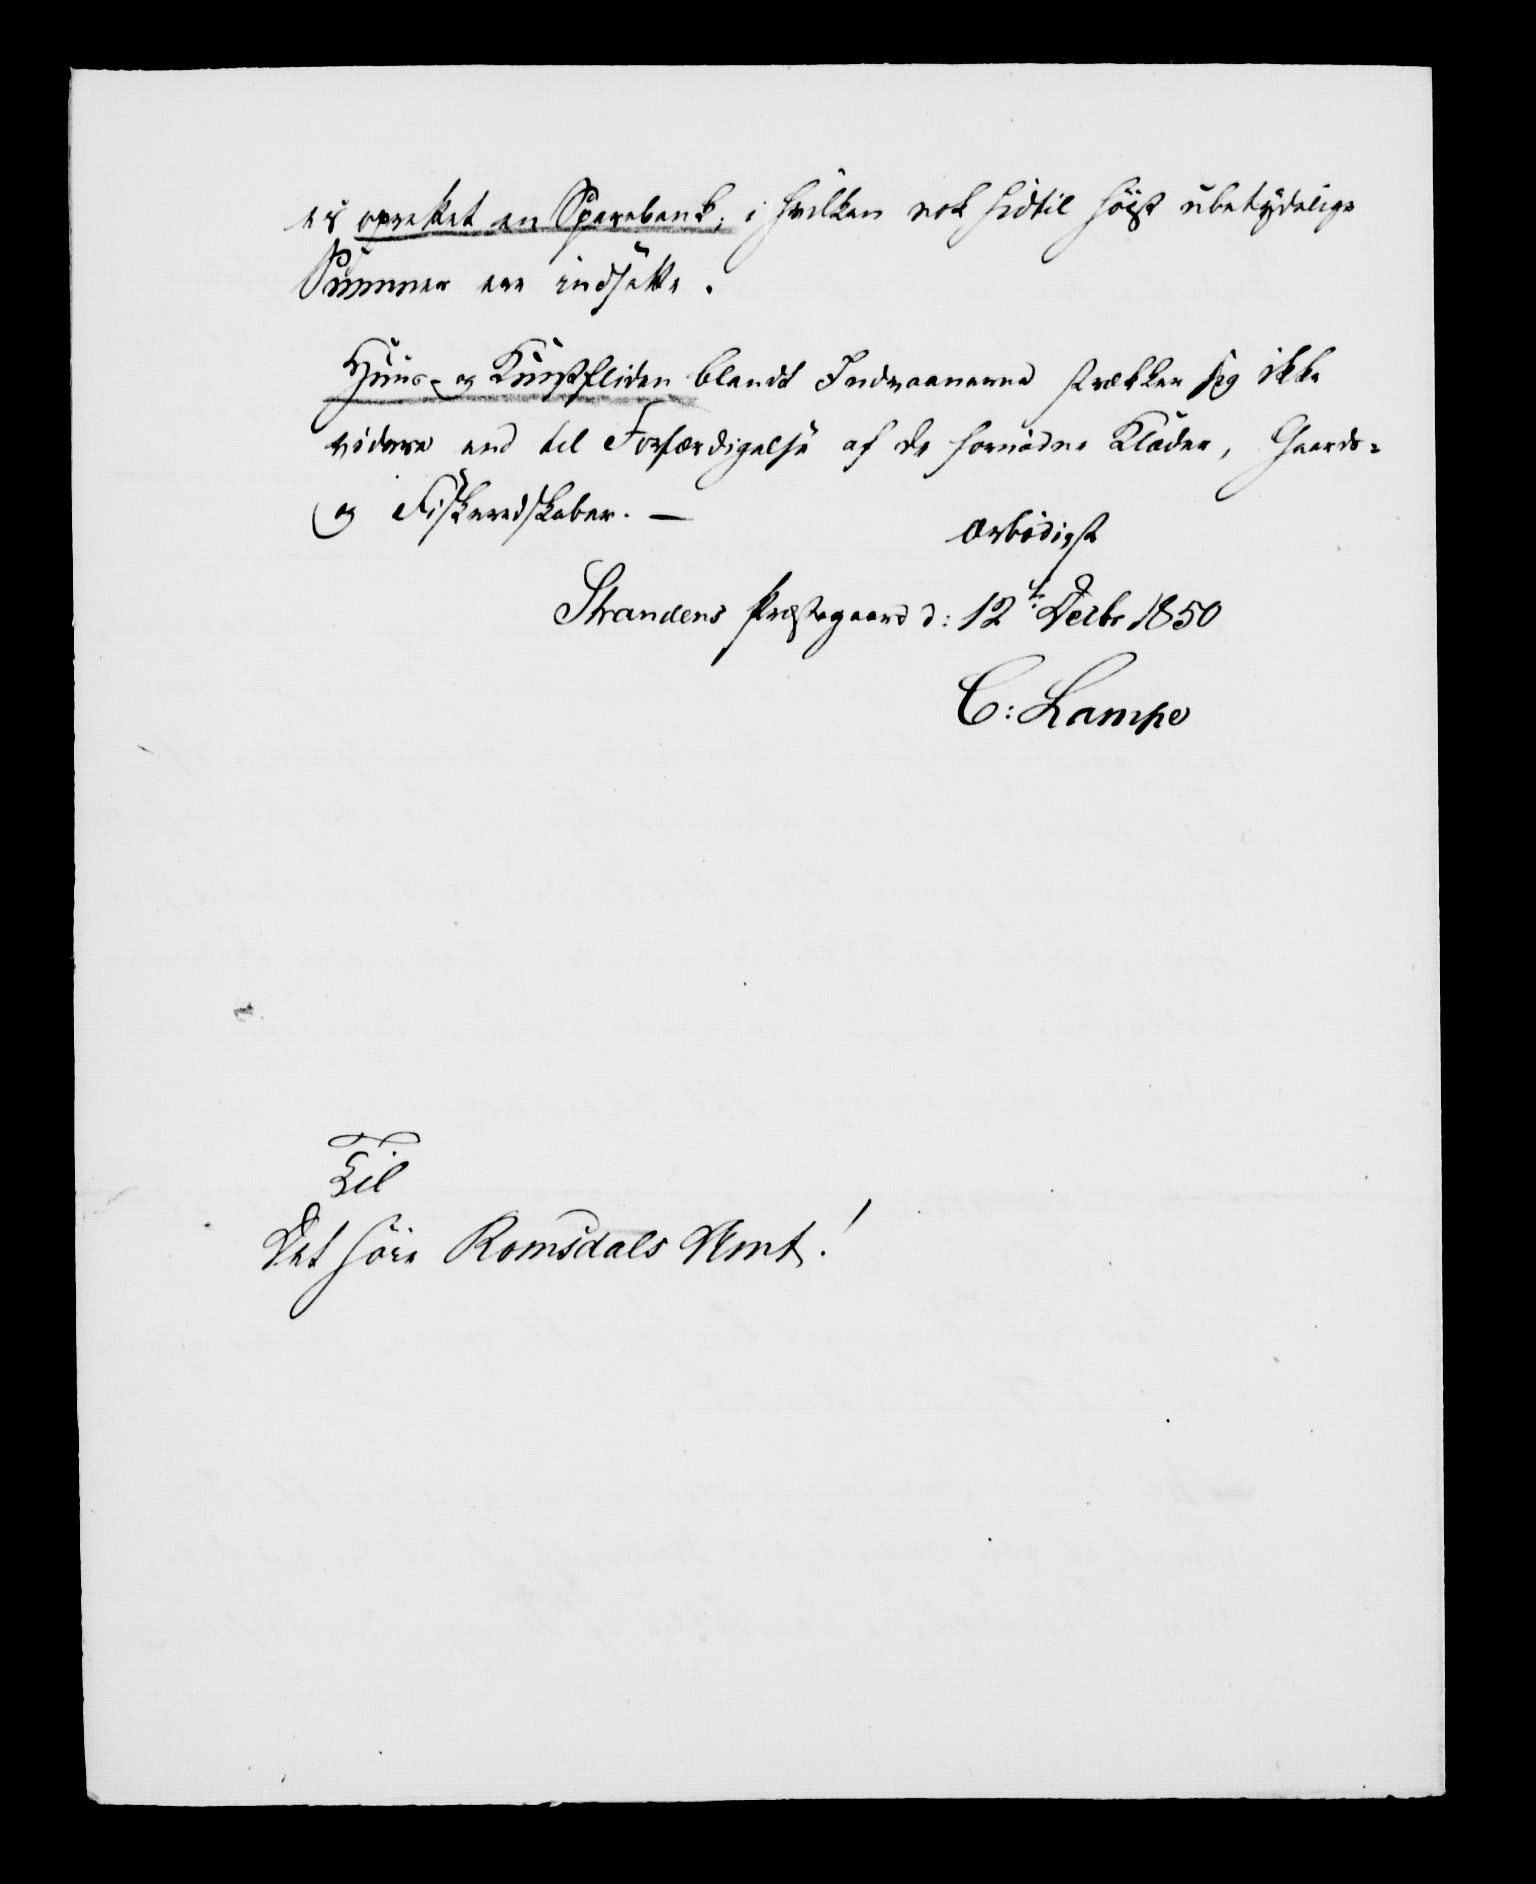 er oprettet en Sparebank, i hvilken nok hidtil høist ubetydelige
Summer ere indsatte.
Huus- og Kunstfliden blandt Indvaanerne strækker sig ikke
videre end til Forfærdigelse af de fornødne Klæder, Gaards-
og Fiskeredskaber. —
Ærbødigst
Strandens Præstegaard d: 12te Decbr 1850
C: Lampe
Til
Det høie Romsdals Amt!